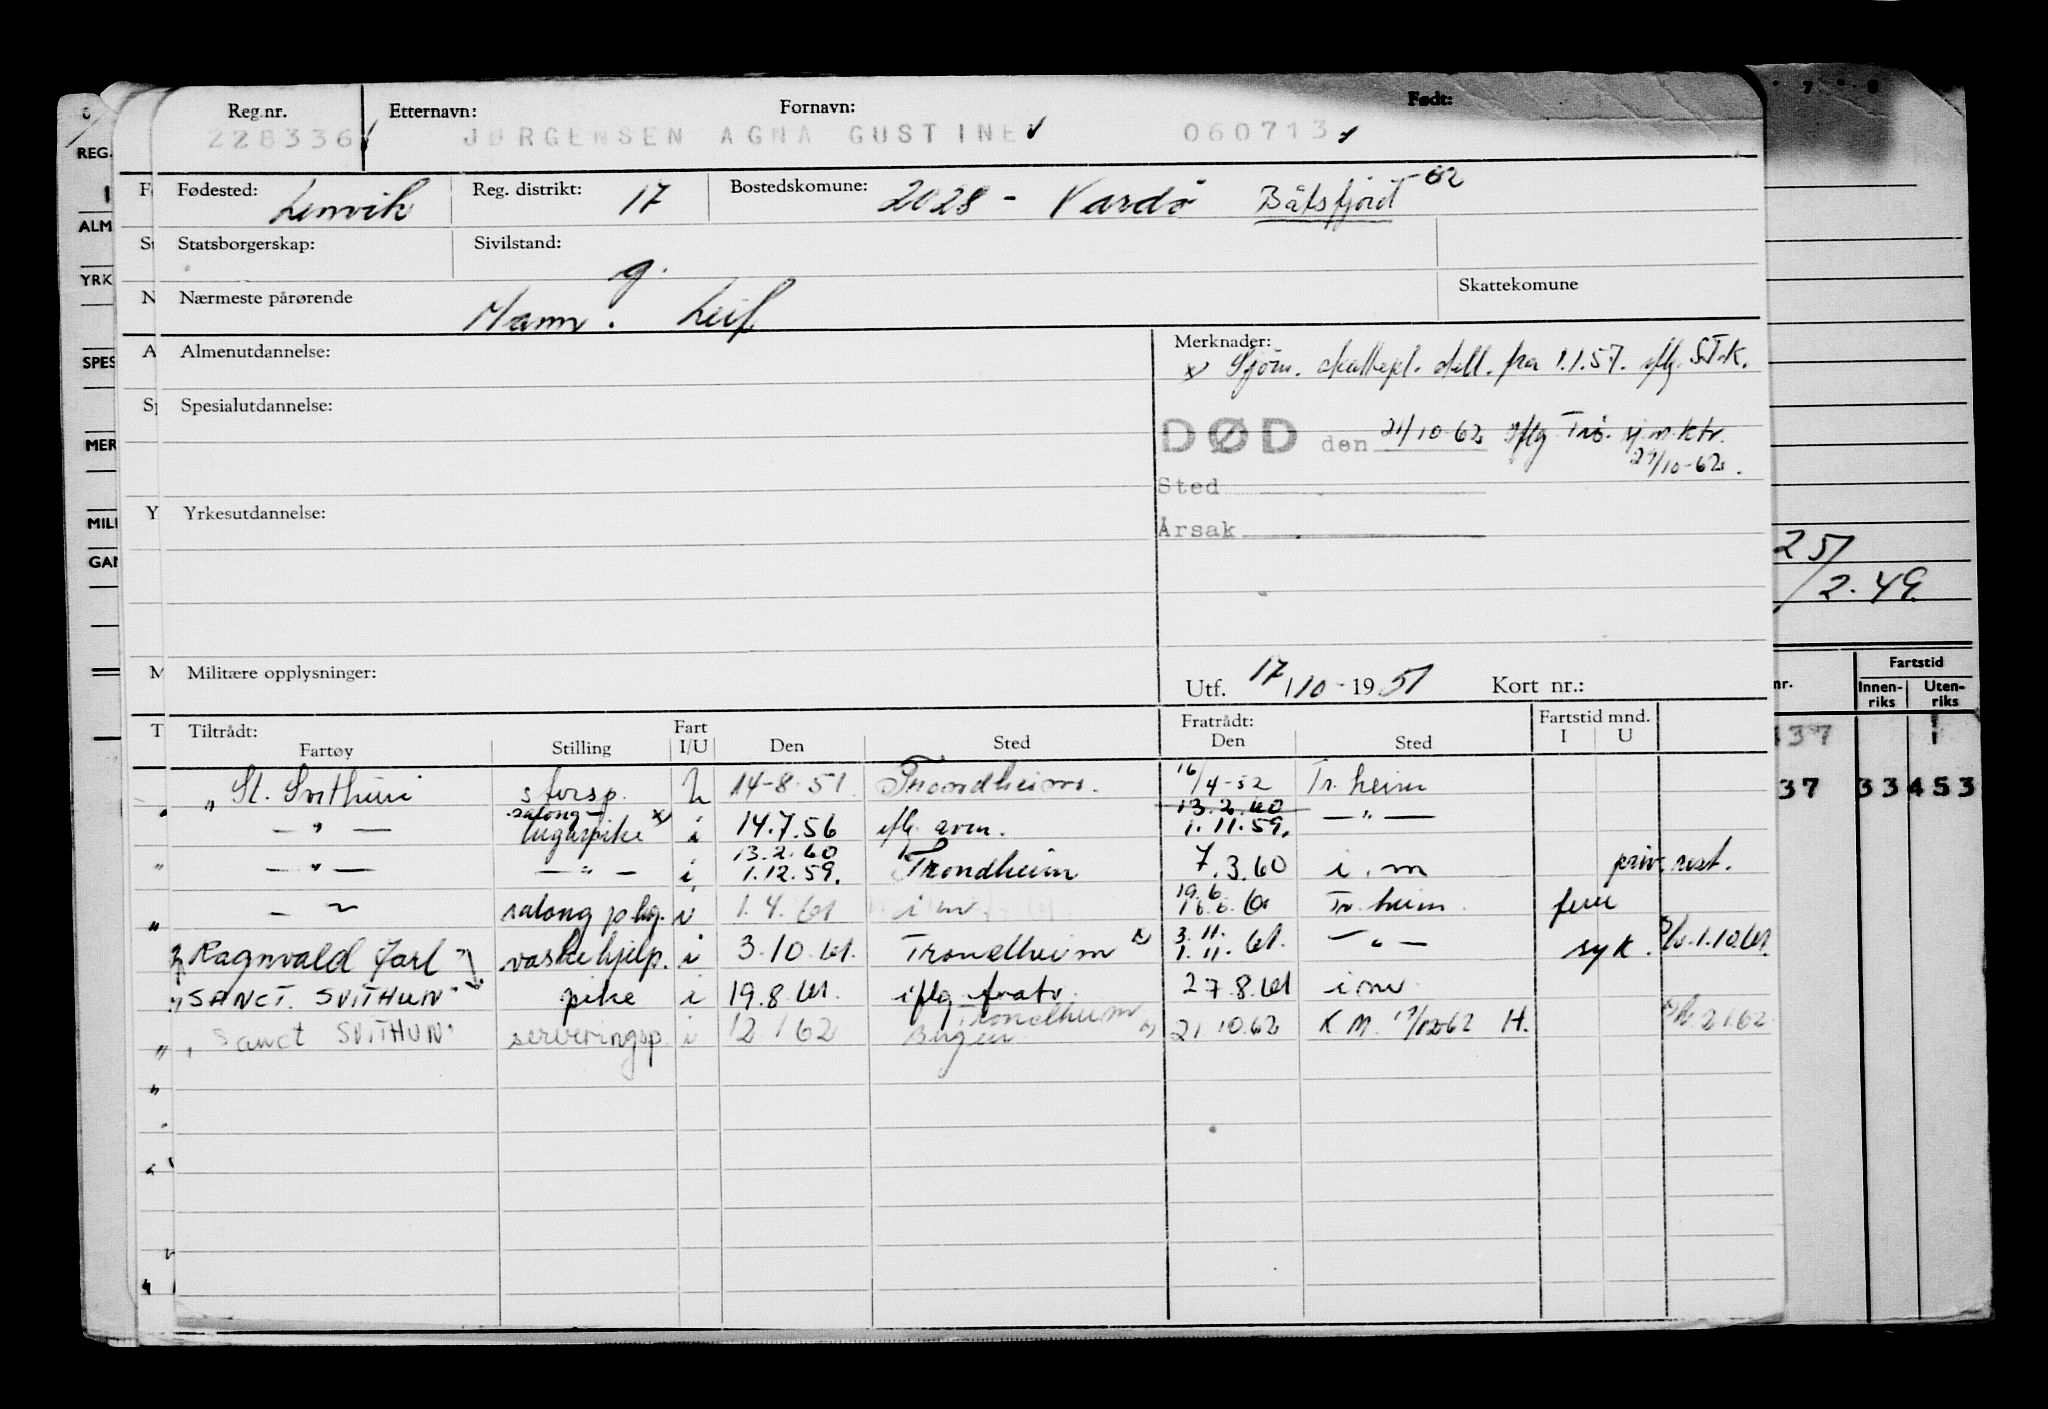 Reg.nr. Etternavn: Fornavn: Født:
228336 JØRGENSEN AGNA GUSTINE 060713
Fødested: Lenvik Reg. distrikt: 17 Bostedskomune: 2028 - Vardø Båtsfjord -62
Statsborgerskap: Sivilstand: g.
Nærmeste pårørende Mann. Leif Skattekomune
Almenutdannelse: Merknader:
x Sjøm. skattepl. still. fra 1.1.57. iflg. S.T.K.
Spesialutdannelse:
DØD den 21/10-62 iflg Trh. sj.m.ktr.
29/10-62.
Sted
Yrkesutdannelse:
Årsak
Militære opplysninger: Utf. 17/10-1951 Kort nr.:
Tiltrådt: Fart Fratrådt: Fartstid mnd.
Fartøy Stilling I/U Den Sted Den Sted I U
St. Svithun 14-8-51 Trondheim. 16/4-52 Tr.heim
salong- 13.2.60
— " — lugarpike x) i 14.7.56 iflg. avm. 1.11.59. — " —
13.2.60
— " — — " — i 1.12.59. Trondheim 7.3.60 i.m priv. rest.
19.6.
— " — salong i 1.4.61 i m 16.6.61 Tr.heim. ferie
3.11.
Ragnvald Jarl vaskehjelp. i 3.10.61. Trondheim x) 1.11.61. — " — syk. 1.10.61.
"SANCT. SVITHUN" pike i 19.8.61. iflg fratr. 27.8.61 i m
Trondheim
"Sanct SVITHUN" serveringsp. i 12 1 62 Bergen 21.10.62 K.M. H. 2 1 62
REG.
ALM
YRK
SPES
MER
MILI
GAN
25/
2.49
Fartstid
nr. Innen-riks Uten-riks
37 1
37 33 453